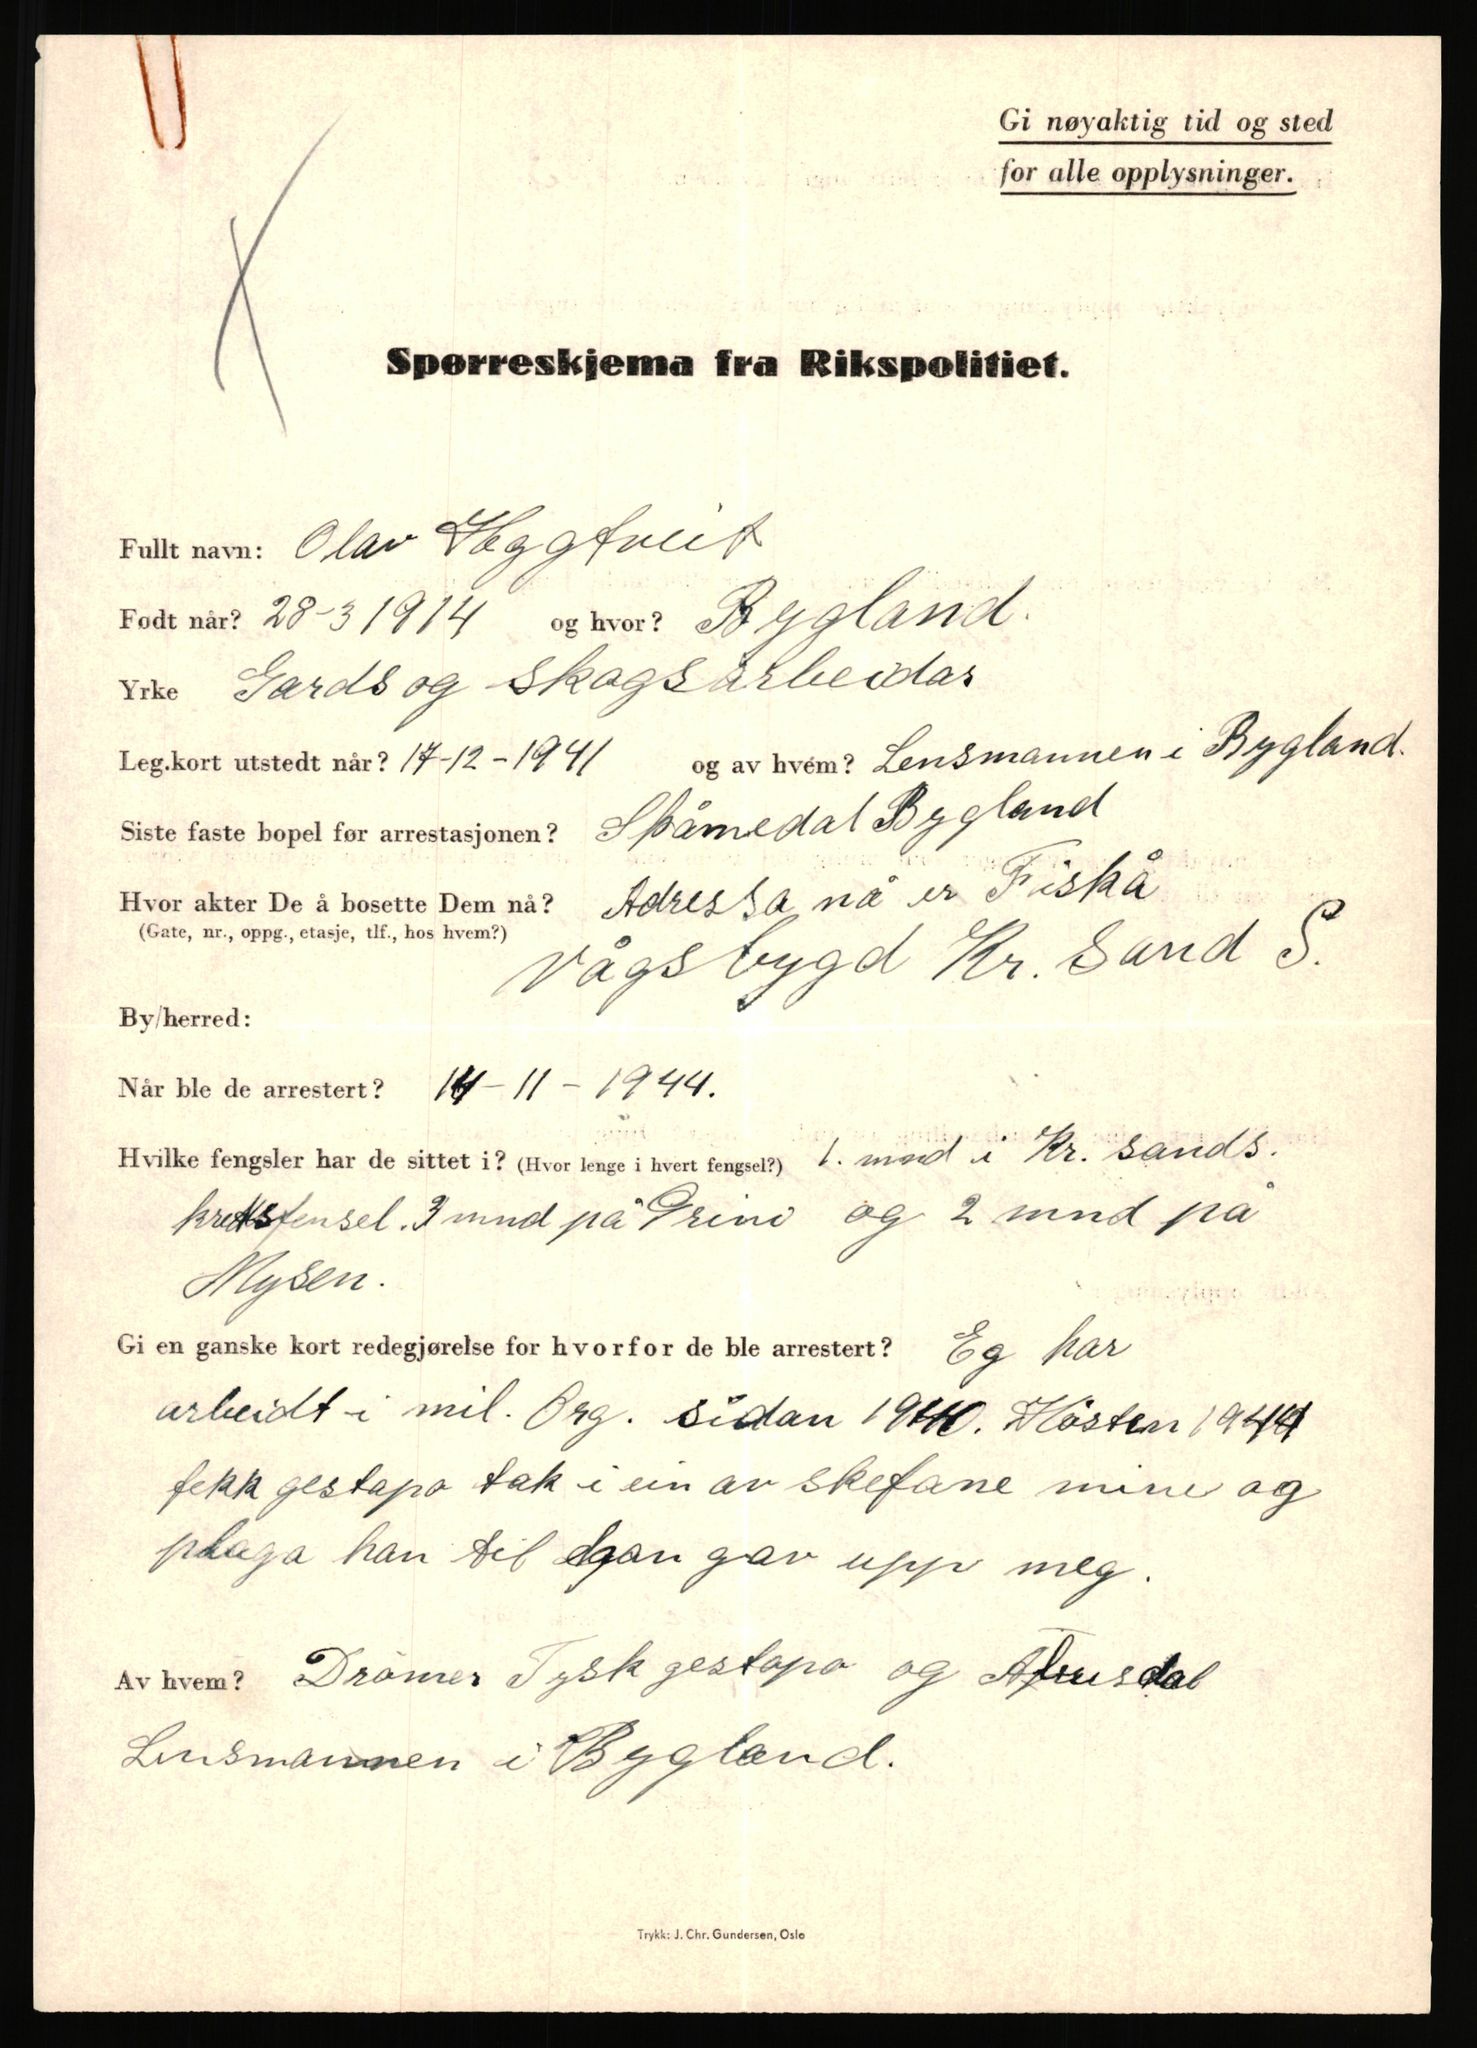 Gi nøyaktig tid og sted
for alle opplysninger.
Spørreskjema fra Rikspolitiet.
Fullt navn: Olav Heggtveit
Født når? 28-3 1914 og hvor? Bygland.
Yrke Gards og skogsarbeidar
Leg.kort utstedt når? 17-12-1941 og av hvem? Lensmannen i Bygland.
Siste faste bopel før arrestasjonen? Skåmedal Bygland
Hvor akter De å bosette Dem nå? Adressa nå er Fiskå
(Gate, nr., oppg., etasje, tlf., hos hvem?)
Vågsbygd Kr. Sand S.
By/herred:
Når ble de arrestert? 14-11-1944.
Hvilke fengsler har de sittet i? (Hvor lenge i hvert fengsel?) 1. mnd i Kr. sands.
kretsfensel. 3 mnd på Grini og 2 mnd på
Mysen.
Gi en ganske kort redegjørelse for hvorfor de ble arrestert? Eg har
arbeidt i mil. Org. sidan 1940. Hösten 1944
fekk gestapo tak i ein av skefane mine og
plaga han til han gav upp meg.
Av hvem? Drömer Tysk gestapo og
Lensmannen i Bygland.
Trykk: J. Chr. Gundersen, Oslo